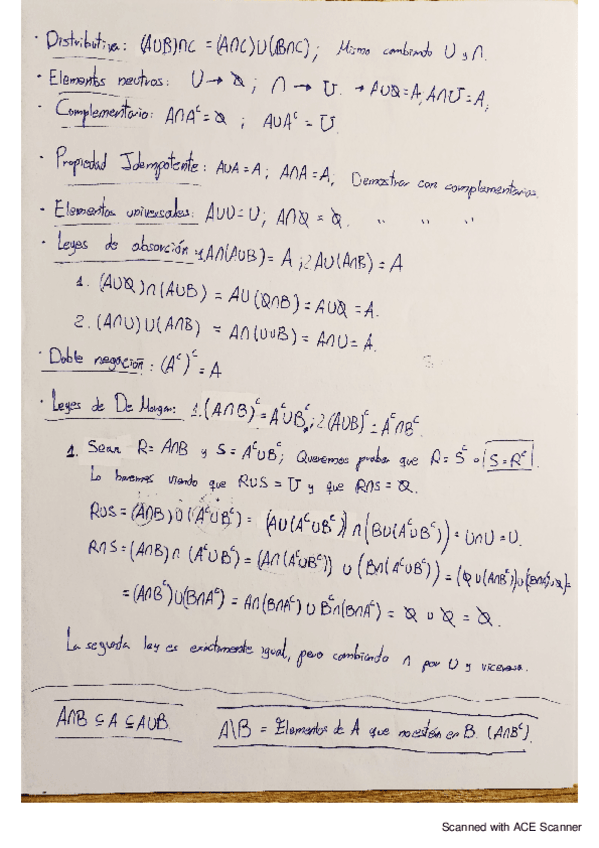 · Distributiva: (A∪B)∩C = (A∩C)∪(B∩C); Mismo cambiando ∪ y ∩.
· Elementos neutros: ∪ → ∅; ∩ → U. → A∪∅=A; A∩U=A;
· Complementario: A∩Aᶜ=∅ ; A∪Aᶜ = U.
· Propiedad Idempotente: A∪A=A; A∩A=A; Demostrar con complementarios.
· Elementos universales: A∪U=U; A∩∅ = ∅. " " "
· Leyes de absorción 1. A∩(A∪B)= A ; 2 A∪(A∩B) = A
1. (A∪∅)∩(A∪B) = A∪(∅∩B) = A∪∅ = A.
2. (A∩U)∪(A∩B) = A∩(U∪B) = A∩U = A.
· Doble negación: (Aᶜ)ᶜ = A
· Leyes de De Morgan: 1.(A∩B)ᶜ = Aᶜ∪Bᶜ; 2 (A∪B)ᶜ = Aᶜ∩Bᶜ.
1. Sean R= A∩B y S = Aᶜ∪Bᶜ; Queremos probar que R= Sᶜ o S=Rᶜ.
Lo haremos viendo que R∪S = U y que R∩S = ∅.
R∪S = (A∩B)∪(Aᶜ∪Bᶜ) = (A∪(Aᶜ∪Bᶜ)) ∩ (B∪(Aᶜ∪Bᶜ)) = U∩U = U.
R∩S = (A∩B)∩(Aᶜ∪Bᶜ) = (A∩(Aᶜ∪Bᶜ)) ∪ (B∩(Aᶜ∪Bᶜ)) = (∅∪(A∩Bᶜ))∪((B∩Aᶜ)∪∅)=
= (A∩Bᶜ)∪(B∩Aᶜ) = A∩(B∩Aᶜ) ∪ Bᶜ∩(B∩Aᶜ) = ∅ ∪ ∅ = ∅.
La segunda ley es exactamente igual, pero cambiando ∩ por ∪ y viceversa.
A∩B ⊆ A ⊆ A∪B.
A\B = Elementos de A que no estén en B. (A∩Bᶜ).
Scanned with ACE Scanner